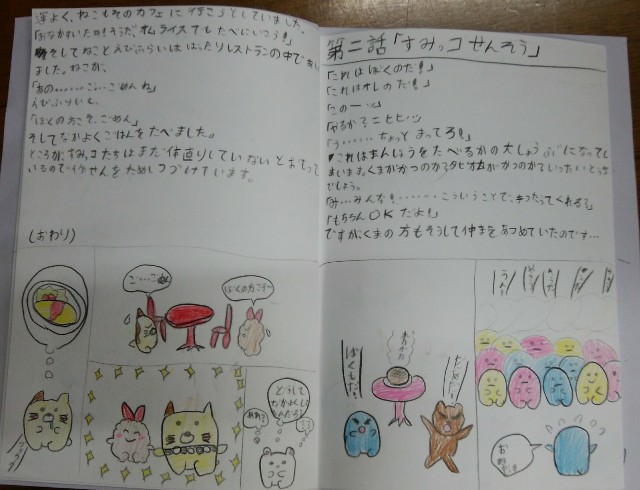 運よく、ねこもそのカフェに行こうとしていました。
「おなかすいたな!そうだ、オムライスでもたべにいこう!」
そしてねことえびふらいはばったりレストランの中で会い
ました。ねこが、
「あの……ご…ごめんね」
えびふらいも、
「ぼくの方こそ、ごめん」
そしてなかよくごはんをたべました。
ところが、すみっコたちはまだ仲直りしていないとおもって
いるので作せんをためしつづけています。
(おわり)
ご…ごめ
ぼくの方こそ〜
どうして
第二話「すみっコせんそう」
「これはぼくのだ!」
「これはオレのだ!」
「このー
「う……ちょっとまってろ!」
これはまんじゅうをたべるかの大しょうぶになってし
まいます。くまがかつのか?タピオカがかつのか?いったいどっち
でしょう。
「み…みんな!……こういうことで、手つだってくれる?」
「もちろんOKだよ!」
ですが、くまの方もそうして仲まをあつめていたのです…
ぼくのだ!